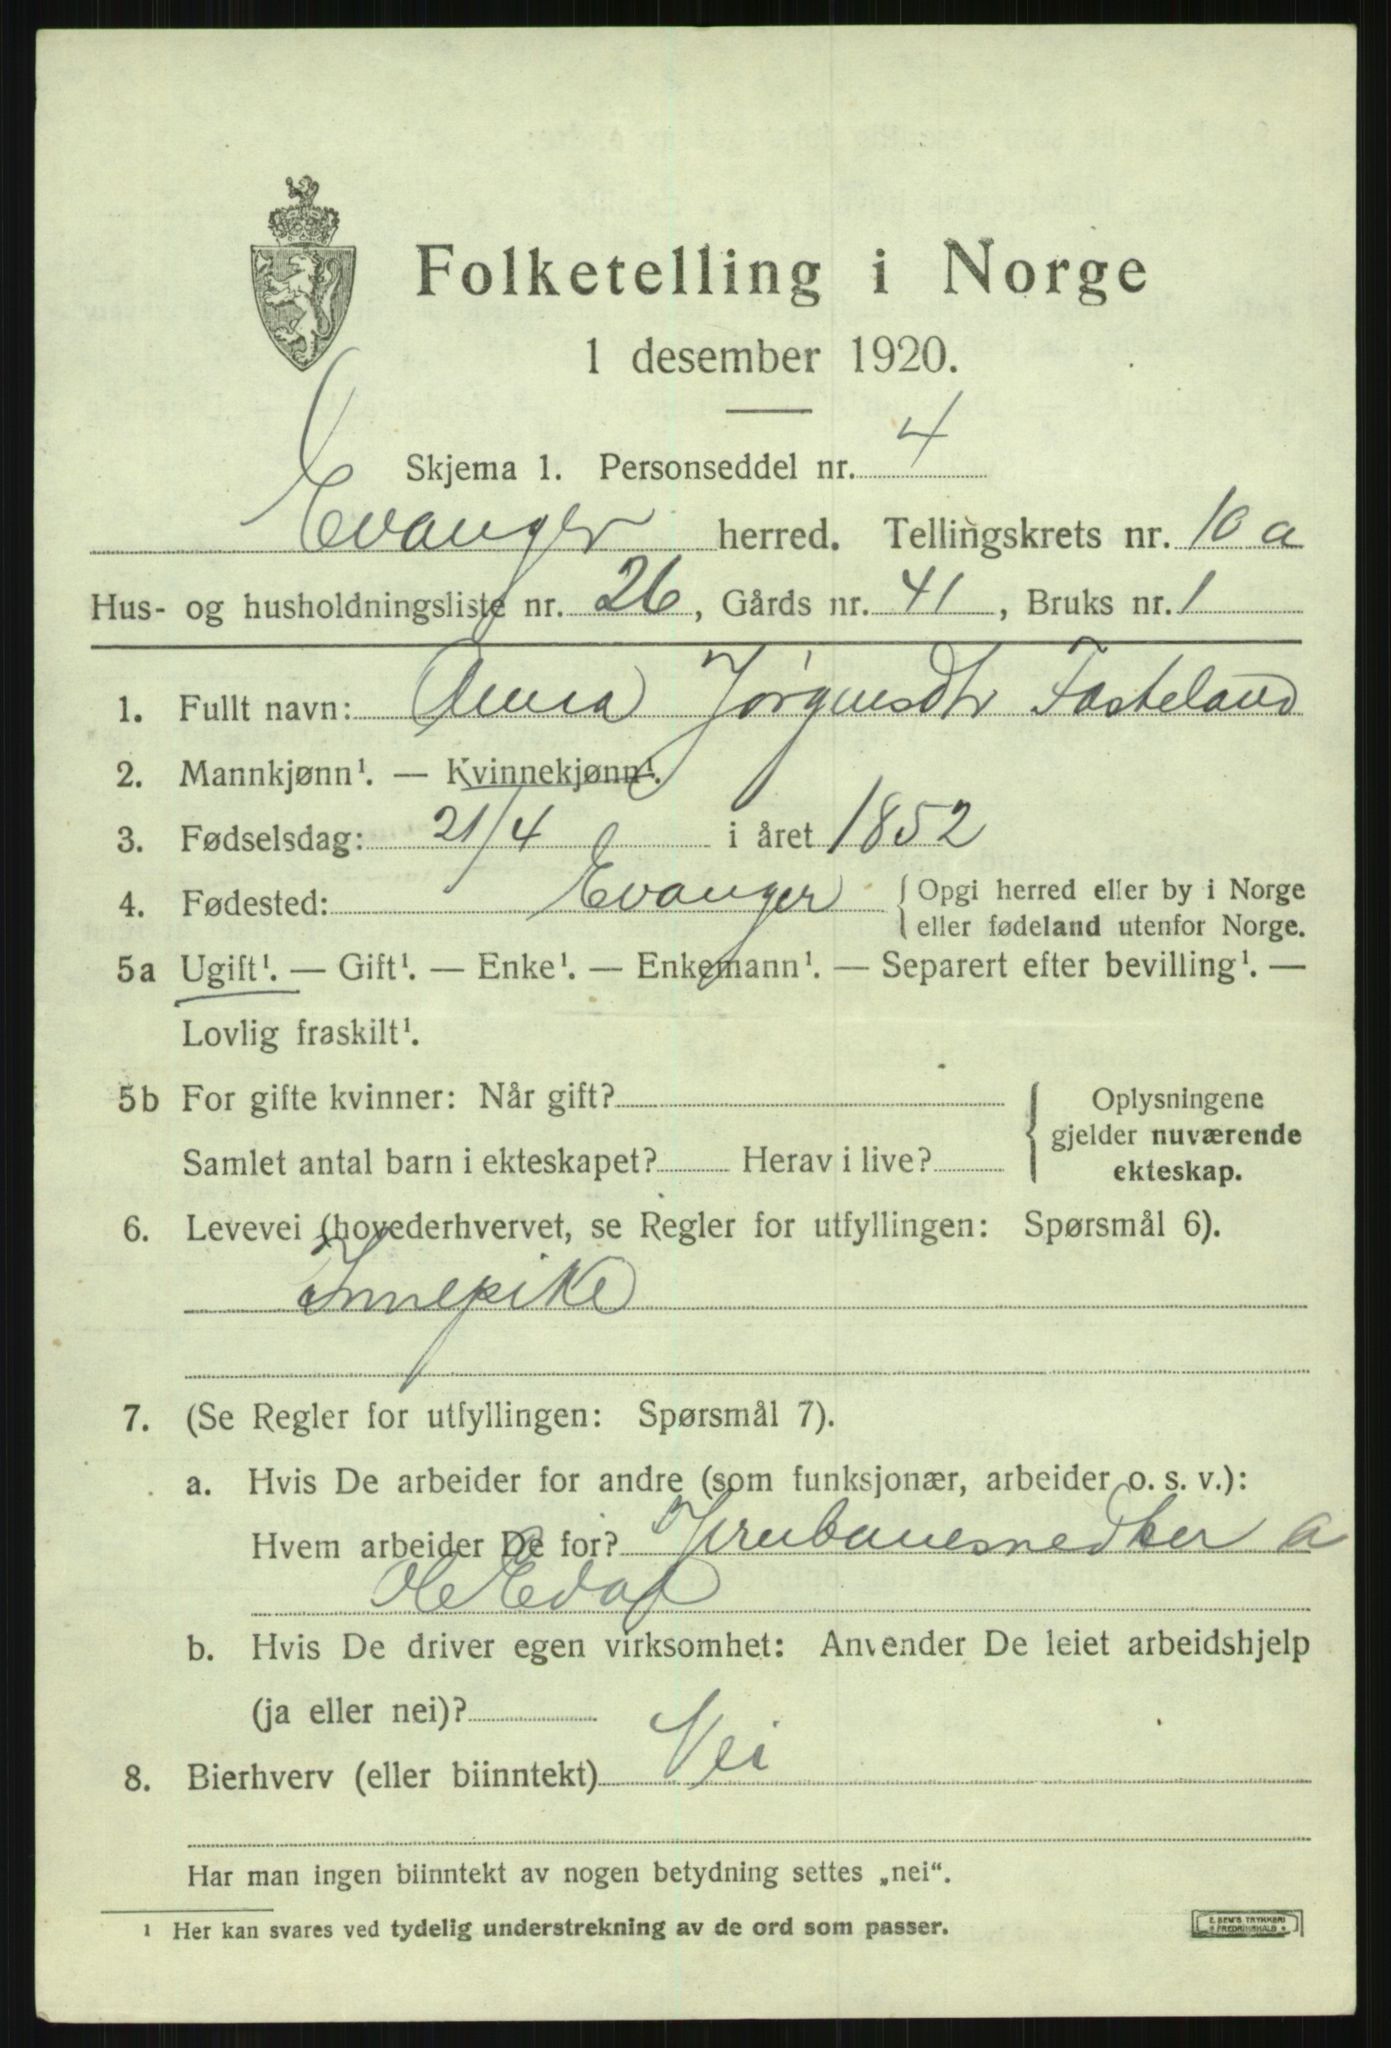 Folketelling i Norge
1 desember 1920.
Skjema 1. Personseddel nr. 4
Evanger herred. Tellingskrets nr. 10 a
Hus- og husholdningsliste nr. 26, Gårds nr. 41, Bruks nr. 1
1. Fullt navn: Anna Jørgensdtr Fasteland
2. Mannkjønn¹. — Kvinnekjønn¹.
3. Fødselsdag: 21/4 i året 1852
4. Fødested: Evanger { Opgi herred eller by i Norge
eller fødeland utenfor Norge.
5a Ugift¹. — Gift¹. — Enke¹. — Enkemann¹. — Separert efter bevilling¹. —
Lovlig fraskilt¹.
5b For gifte kvinner: Når gift?
Samlet antal barn i ekteskapet? Herav i live?
{ Oplysningene
gjelder nuværende
ekteskap.
6. Levevei (hovederhvervet, se Regler for utfyllingen: Spørsmål 6).
Innepike
7. (Se Regler for utfyllingen: Spørsmål 7).
a. Hvis De arbeider for andre (som funksjonær, arbeider o. s. v.):
Hvem arbeider De for? a
Ole
b. Hvis De driver egen virksomhet: Anvender De leiet arbeidshjelp
(ja eller nei)?
8. Bierhverv (eller biinntekt) Nei
Har man ingen biinntekt av nogen betydning settes „nei“.
¹ Her kan svares ved tydelig understrekning av de ord som passer.
E. SEM'S TRYKKERI
FREDRIKSHALD